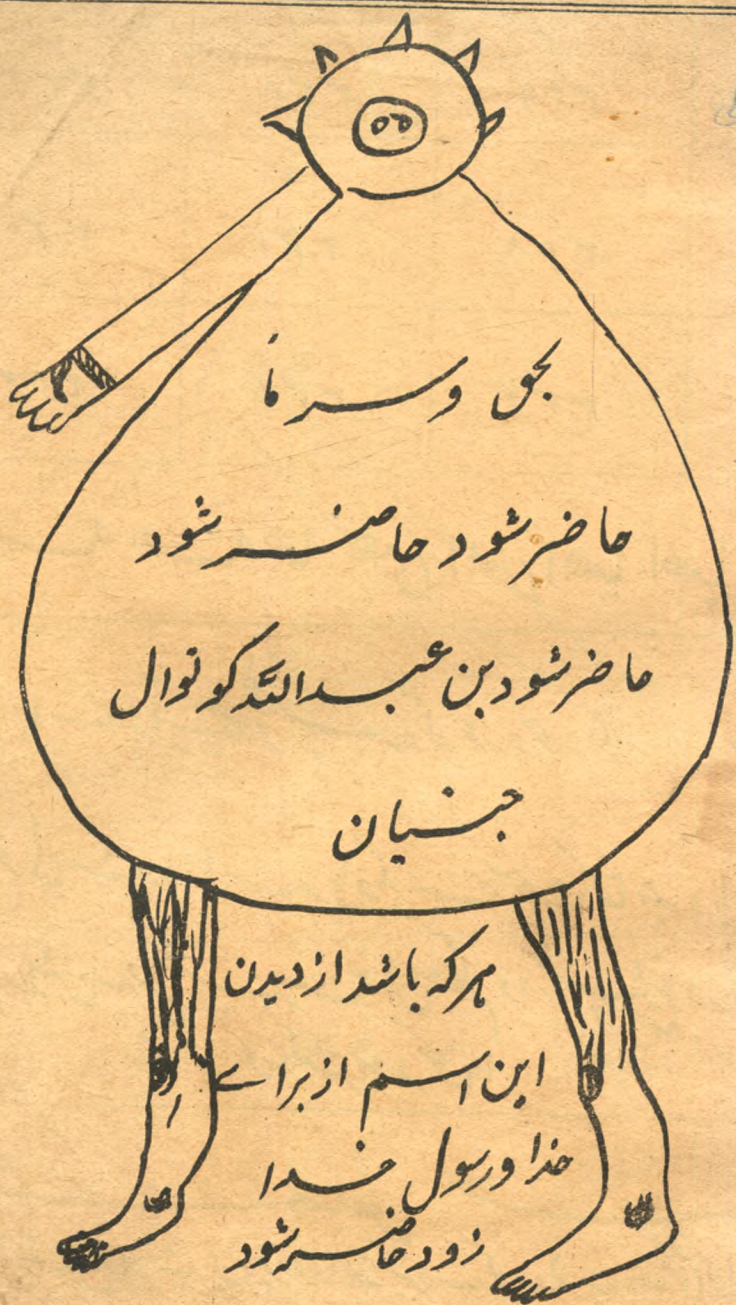 بحق و سرنا
حاضر شود حاضر شود
حاضر شود بن عبد اللہ کوتوال
جنیان
ہر کہ باشد از دیدن
این اسم از براے
خدا و رسول خدا
زود حاضر شود